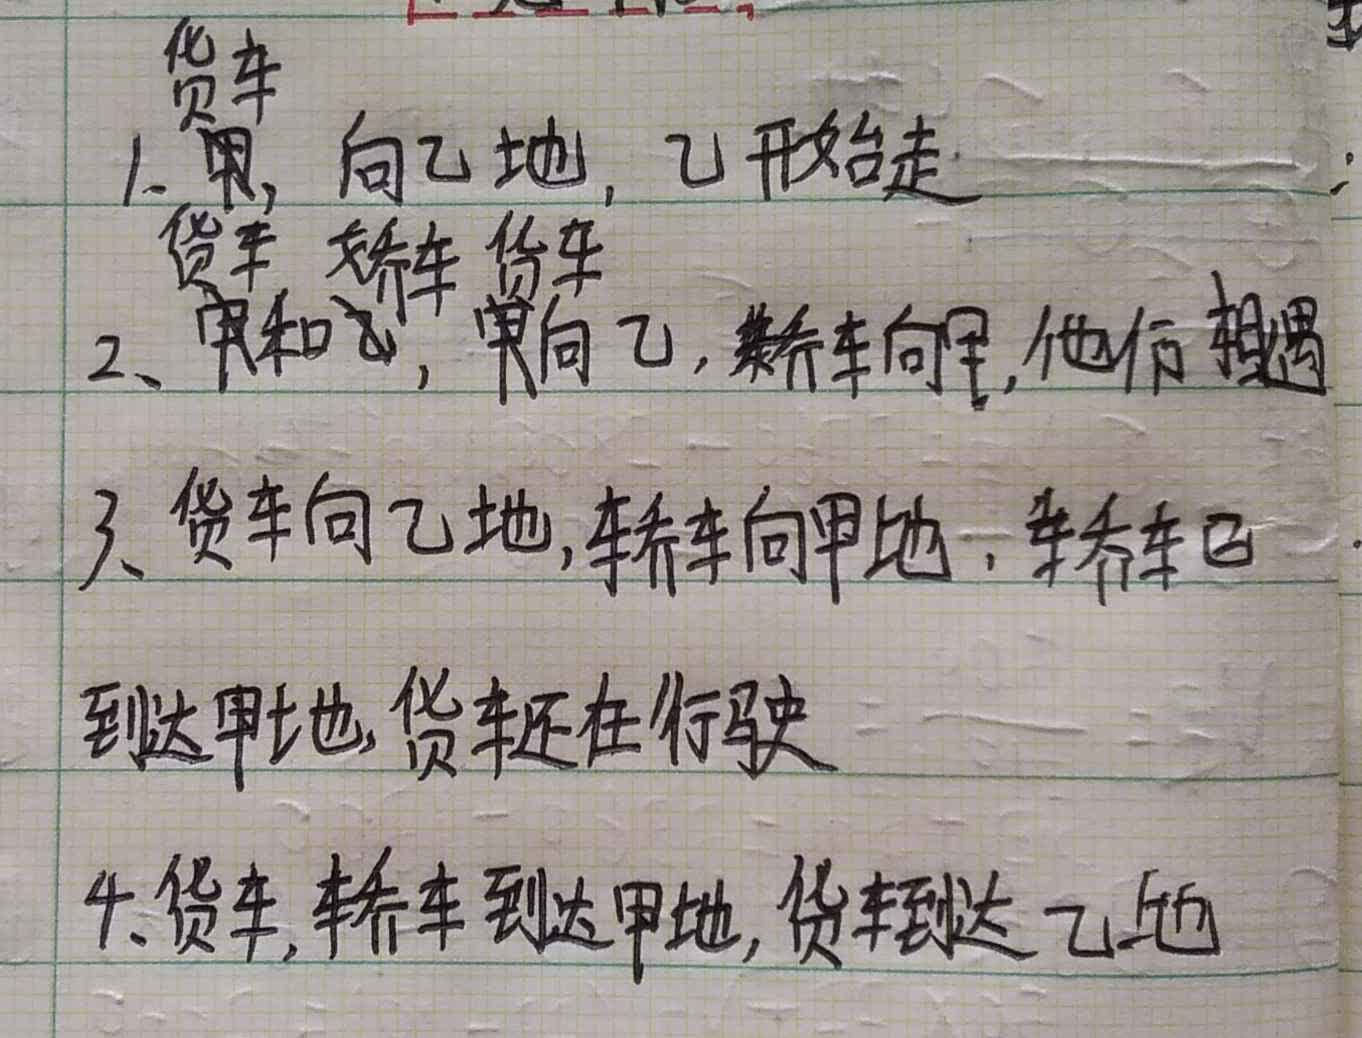 货车
1、甲, 向乙地, 乙开始走
货车 轿车 货车
2、甲和乙, 甲向乙, 轿车向甲, 他们相遇
3、货车向乙地, 轿车向甲地, 轿车已
到达甲地, 货车还在行驶
4、货车, 轿车到达甲地, 货车到达乙地